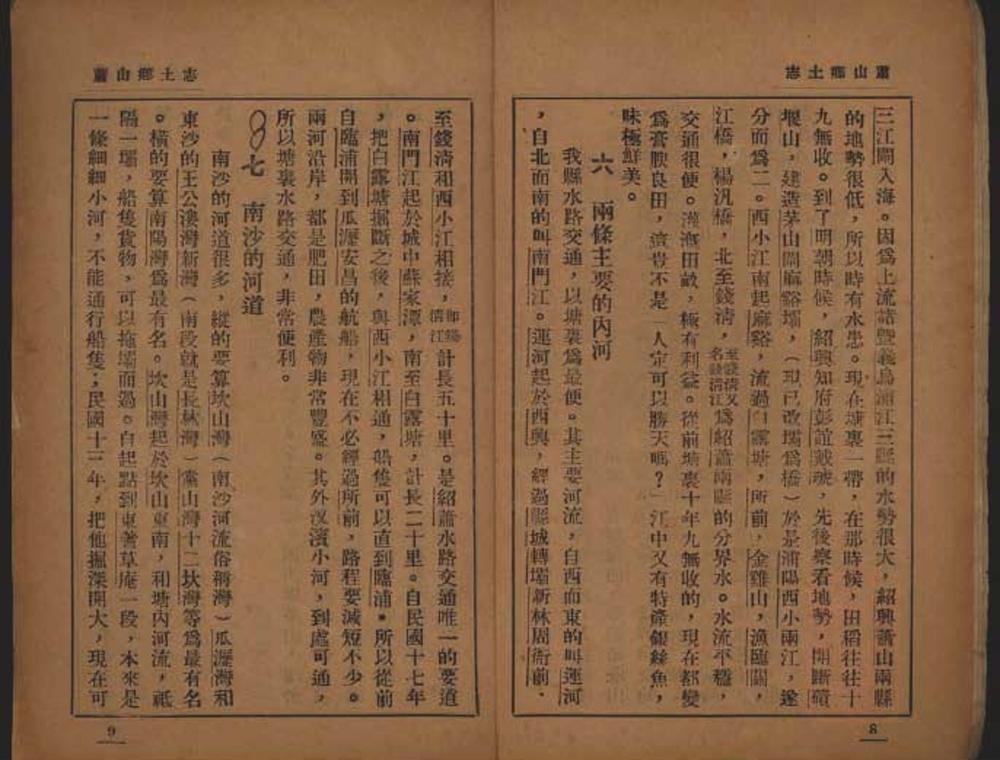 蕭山鄉土志
三江閘入海。因爲上流諸暨義烏浦江三縣的水勢很大，紹興蕭山兩縣
的地勢很低，所以時有水患。現在塘裏一帶，在那時候，田稻往往十
九無收。到了明朝時候，紹興知府彭誼戴琥，先後察看地勢，開斷磧
堰山，建造茅山閘麻谿壩，（現已改壩爲橋）於是浦陽西小兩江，遂
分而爲二。西小江南起麻谿，流過白露塘，所前，金雞山，漁臨關，
江橋，楊汛橋，北至錢淸，至錢淸又名錢淸江爲紹蕭兩縣的分界水。水流平穩，
交通很便。灌漑田畝，極有利益。從前塘裏十年九無收的，現在都變
爲膏腴良田，這豈不是「人定可以勝天嗎？」江中又有特產銀絲魚，
味極鮮美。
六　兩條主要的內河
我縣水路交通，以塘裏爲最便。其主要河流，自西而東的叫運河
，自北而南的叫南門江。運河起於西興，經過縣城轉壩新林周衙前，
8
蕭山鄉土志
至錢淸和西小江相接，卽錢淸江計長五十里。是紹蕭水路交通唯一的要道
。南門江起於城中蘇家潭，南至白露塘，計長二十里。自民國十七年
，把白露塘掘斷之後，與西小江相通，船隻可以直到臨浦。所以從前
自臨浦開到瓜瀝安昌的航船，現在不必經過所前，路程要減短不少。
兩河沿岸，都是肥田，農產物非常豐盛。其外汊濱小河，到處可通，
所以塘裏水路交通，非常便利。
七　南沙的河道
南沙的河道很多，縱的要算坎山灣（南沙河流俗稱灣）瓜瀝灣和
東沙的王公漊灣新灣（南段就是長林灣）黨山灣十二埭灣等爲最有名
。橫的要算南陽灣爲最有名。坎山灣起於坎山東南，和塘內河流，祗
隔一壩，船隻貨物，可以拖壩而過。自起點到東著草庵一段，本來是
一條細細小河，不能通行船隻；民國十三年，把他掘深開大，現在可
9